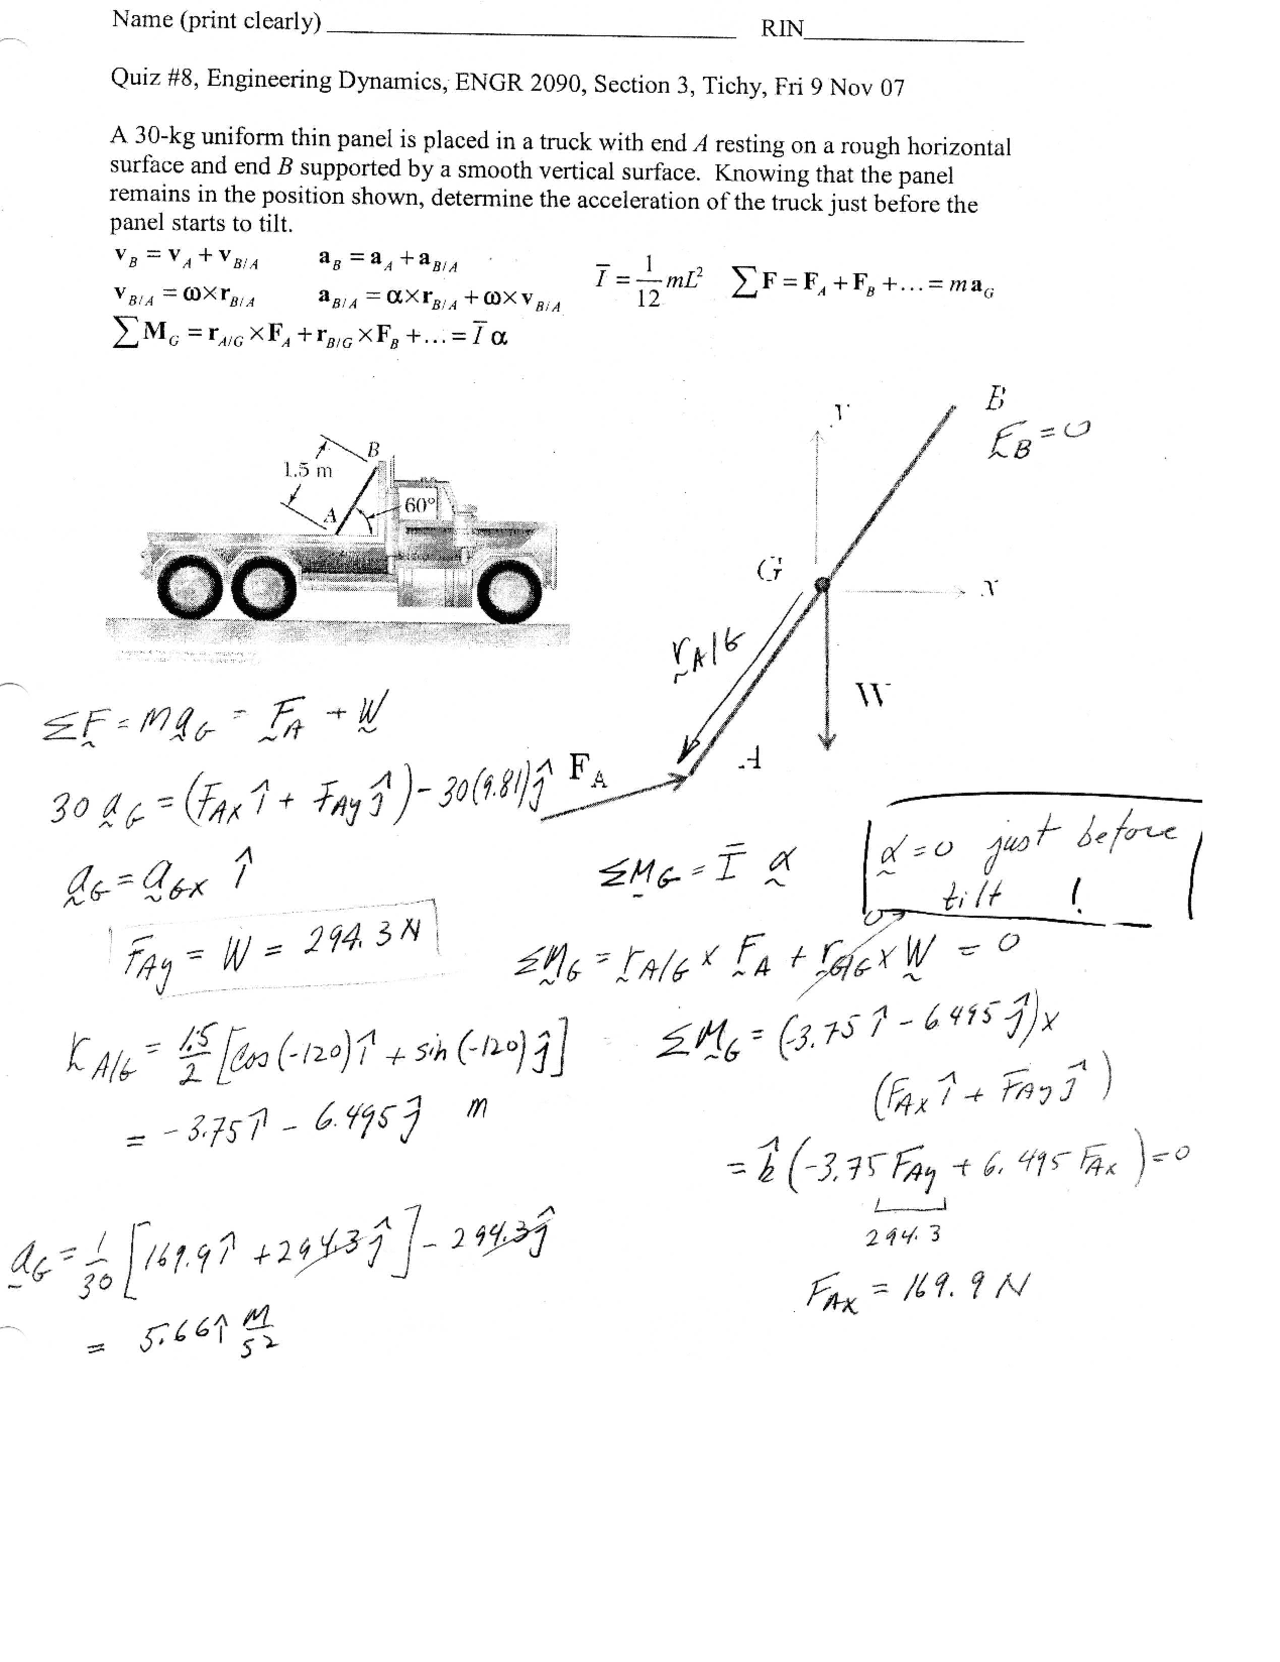 Name (print clearly)
RIN
Quiz #8, Engineering Dynamics, ENGR 2090, Section 3, Tichy, Fri 9 Nov 07
A 30-kg uniform thin panel is placed in a truck with end A resting on a rough horizontal
surface and end B supported by a smooth vertical surface. Knowing that the panel
remains in the position shown, determine the acceleration of the truck just before the
panel starts to tilt.
v_B = v_A + v_B/A   a_B = a_A + a_B/A
v_B/A = ω×r_B/A   a_B/A = α×r_B/A + ω×v_B/A
Ī = 1/12 mL²   ∑F = F_A + F_B + ... = m a_G
∑M_G = r_A/G × F_A + r_B/G × F_B + ... = Ī α
B
1.5 m
A
60°
Y
B
F_B = 0
G
X
r_A/G
W
A
F_A
ΣF = m a_G = F_A + W
30 a_G = (F_Ax î + F_Ay ĵ) - 30(9.81) ĵ
a_G = a_Gx î
F_Ay = W = 294.3 N
r_A/G = 1.5/2 [cos(-120) î + sin(-120) ĵ]
= -3.75 î - 6.495 ĵ m
a_G = 1/30 [169.9 î + 294.3 ĵ] - 294.3 ĵ
= 5.66 î m/s2
ΣM_G = Ī α
α = 0 just before
tilt !
0
ΣM_G = r_A/G × F_A + r_G/G × W = 0
ΣM_G = (-3.75 î - 6.495 ĵ) ×
(F_Ax î + F_Ay ĵ)
= k̂ (-3.75 F_Ay + 6.495 F_Ax) = 0
294.3
F_Ax = 169.9 N